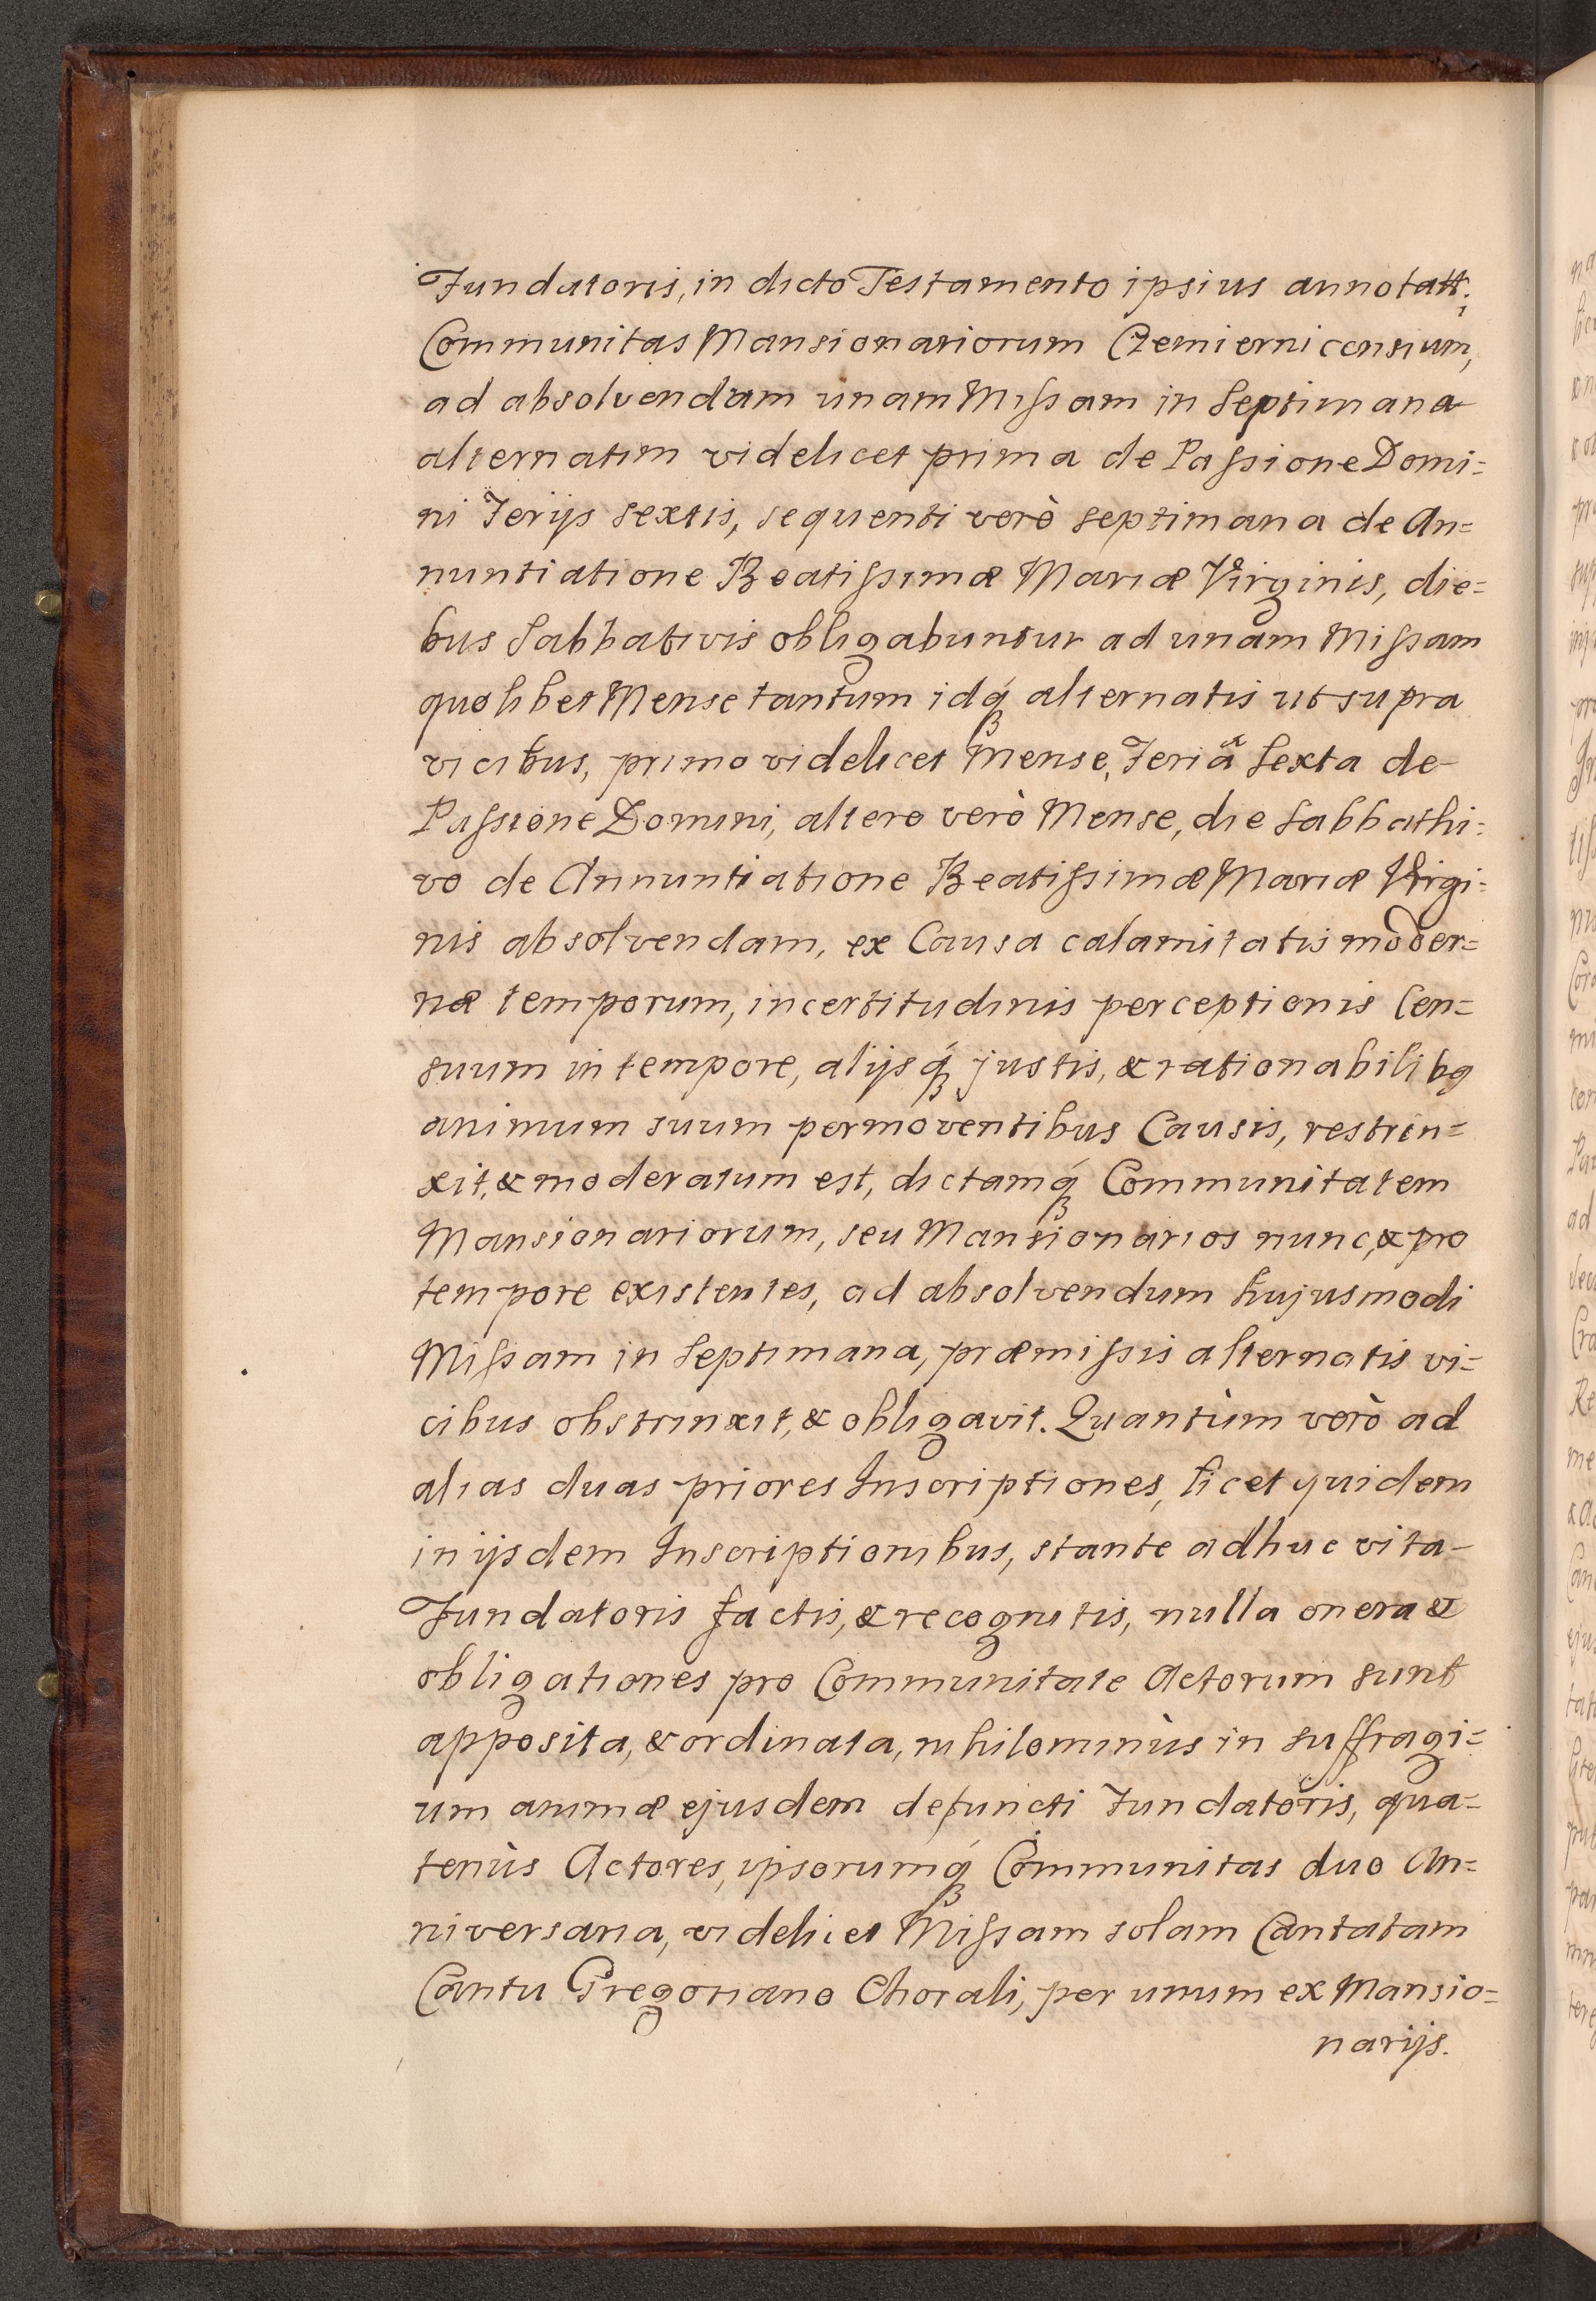 Fundatoris, in dicto Testamento ipsius annotatt;
Communitas Mansionariorum Czemiernicensium,
ad absolvendam unam Missam in Septimana
alternatim videlicet prima de Passione Domi=
ni Ferijs sextis, sequenti verò septimana de An=
nuntiatione Beatissimæ Mariæ Virginis, die=
bus Sabbativis obligabuntur ad unam Missam
quolibet Mense tantum idq́ꝫ alternatis ut supra
vicibus, primo videlicet Mense, Feriâ Sexta de
Passione Domini, altero verò Mense, die Sabbathi=
vo de Annuntiatione Beatissimæ Mariæ Virgi=
nis absolvendam, ex Causa calamitatis moder=
næ temporum, incertitudinis perceptionis Cen=
suum in tempore, alijsq́ꝫ justis, & rationabilibꝯ
animum suum permoventibus Causis, restrin=
xit, & moderatum est, dictamq́ꝫ Communitatem
Mansionariorum, seu Mansionarios nunc, & pro
tempore existentes, ad absolvendum hujusmodi
Missam in Septimana, præmissis alternatis vi=
cibus obstrinxit, & obligavit. Quantùm verò ad
alias duas priores Inscriptiones, licet quidem
in ijsdem Inscriptionibus, stante adhuc vita
Fundatoris factis, & recognitis, nulla onera &
obligationes pro Communitate Actorum sunt
apposita, & ordinata, nihilominùs in suffragi=
um animæ ejusdem defuncti Fundatoris, qua=
tenùs Actores, ipsorumq́ꝫ Communitas duo An=
niversaria, videlicet Missam solam Cantatam
Cantu Gregoriano Chorali, per unum ex Mansio=
narijs.